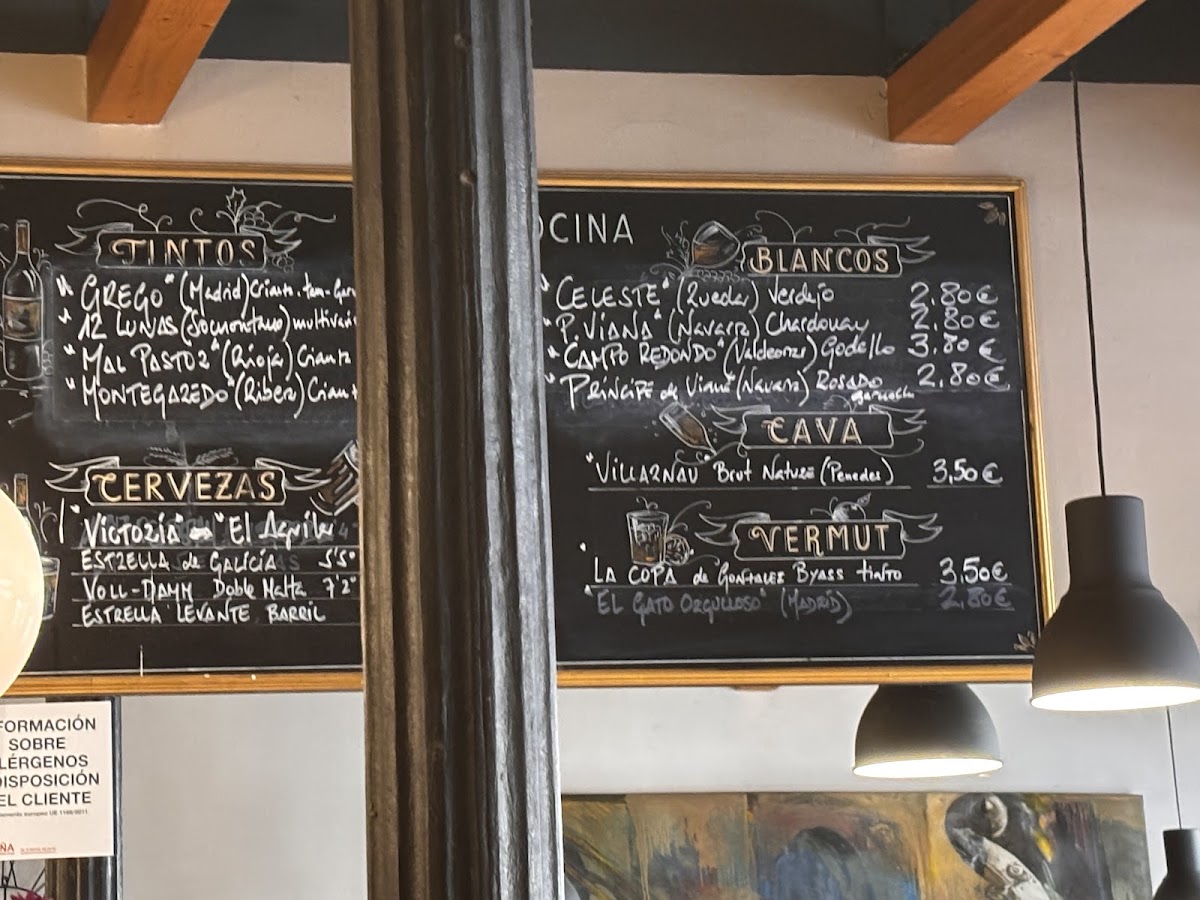 TINTOS
"GREGO" (Madrid) Crianza. tem-Gar
"12 LUNAS (Somontano) multivari
"MAL PASTOR" (Rioja) Crianza
"MONTEGAREDO" (Ribera) Crianz
CERVEZAS
"VICTORIA" "El Aguila
ESTRELLA de GALICIA 5'5º
VOLL-DAMM Doble Malta 7'2º
ESTRELLA LEVANTE BARRIL
OCINA
BLANCOS
"CELESTE" (Rueda) Verdejo 2.80€
"P. VIANA" (Navarra) Chardonay 2.80€
"CAMPO REDONDO" (Valdeorras) Godello 3.80€
"PRÍNCIPE de Viana" (Navarra) ROSADO 2.80€
garnacha
CAVA
"VILLARNAU" Brut Nature (Penedes) 3,50€
VERMUT
"LA COPA de GONZALEZ BYASS tinto 3,50€
"EL GATO ORGULLOSO" (MADRID) 2,80€
FORMACIÓN
SOBRE
LÉRGENOS
DISPOSICIÓN
EL CLIENTE